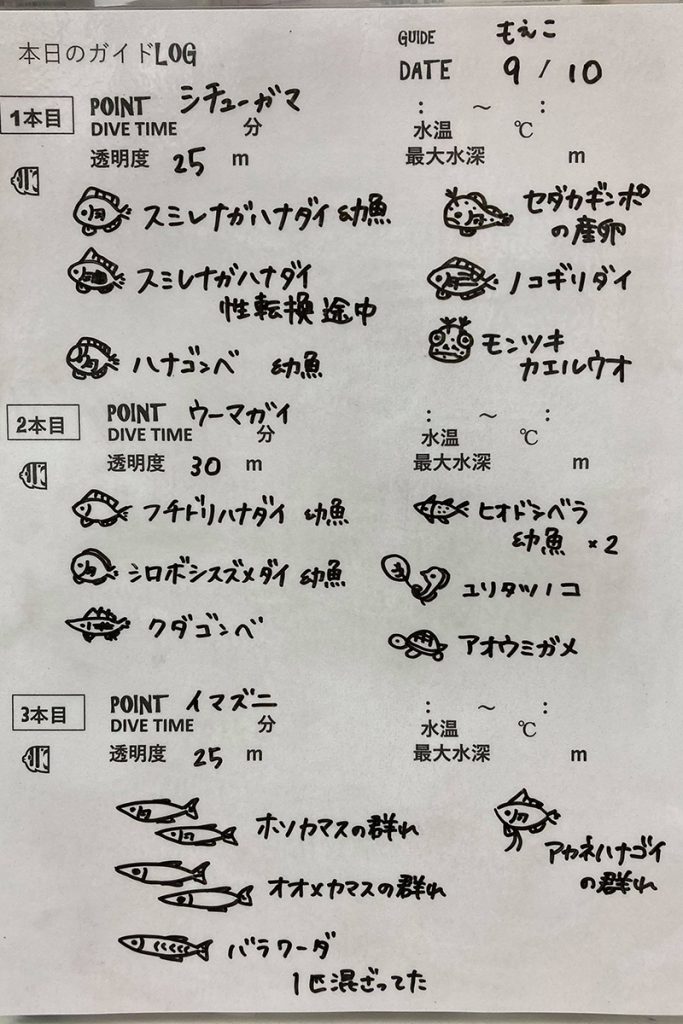 本日のガイドLOG
GUIDE もえこ
DATE 9 / 10
1本目
POINT シチューガマ
DIVE TIME 分
: ～ :
水温 ℃
透明度 25 m
最大水深 m
スミレナガハナダイ 幼魚
スミレナガハナダイ
性転換 途中
ハナゴンベ 幼魚
セダカギンポ
の産卵
ノコギリダイ
モンツキ
カエルウオ
2本目
POINT ウーマガイ
DIVE TIME 分
: ～ :
水温 ℃
透明度 30 m
最大水深 m
フチドリハナダイ 幼魚
シロボシスズメダイ 幼魚
クダゴンベ
ヒオドシベラ
幼魚 ×2
ユリタツノコ
アオウミガメ
3本目
POINT イマズニ
DIVE TIME 分
: ～ :
水温 ℃
透明度 25 m
最大水深 m
ホソカマスの群れ
オオメカマスの群れ
バラワーダ
1匹混ざってた
アカネハナゴイ
の群れ